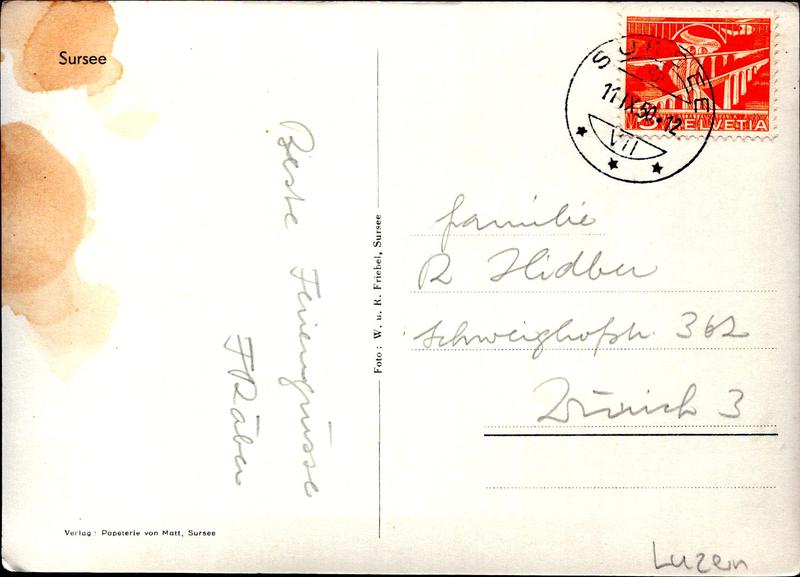 Sursee
Beste Feriengrüsse
F Räber
Foto: W. u. R. Friebel, Sursee
Verlag: Papeterie von Matt, Sursee
SURSEE
11.IX.50.-12
VII
5 HELVETIA
Familie
R Hidber
Schweighofstr. 362
Zürich 3
Luzern